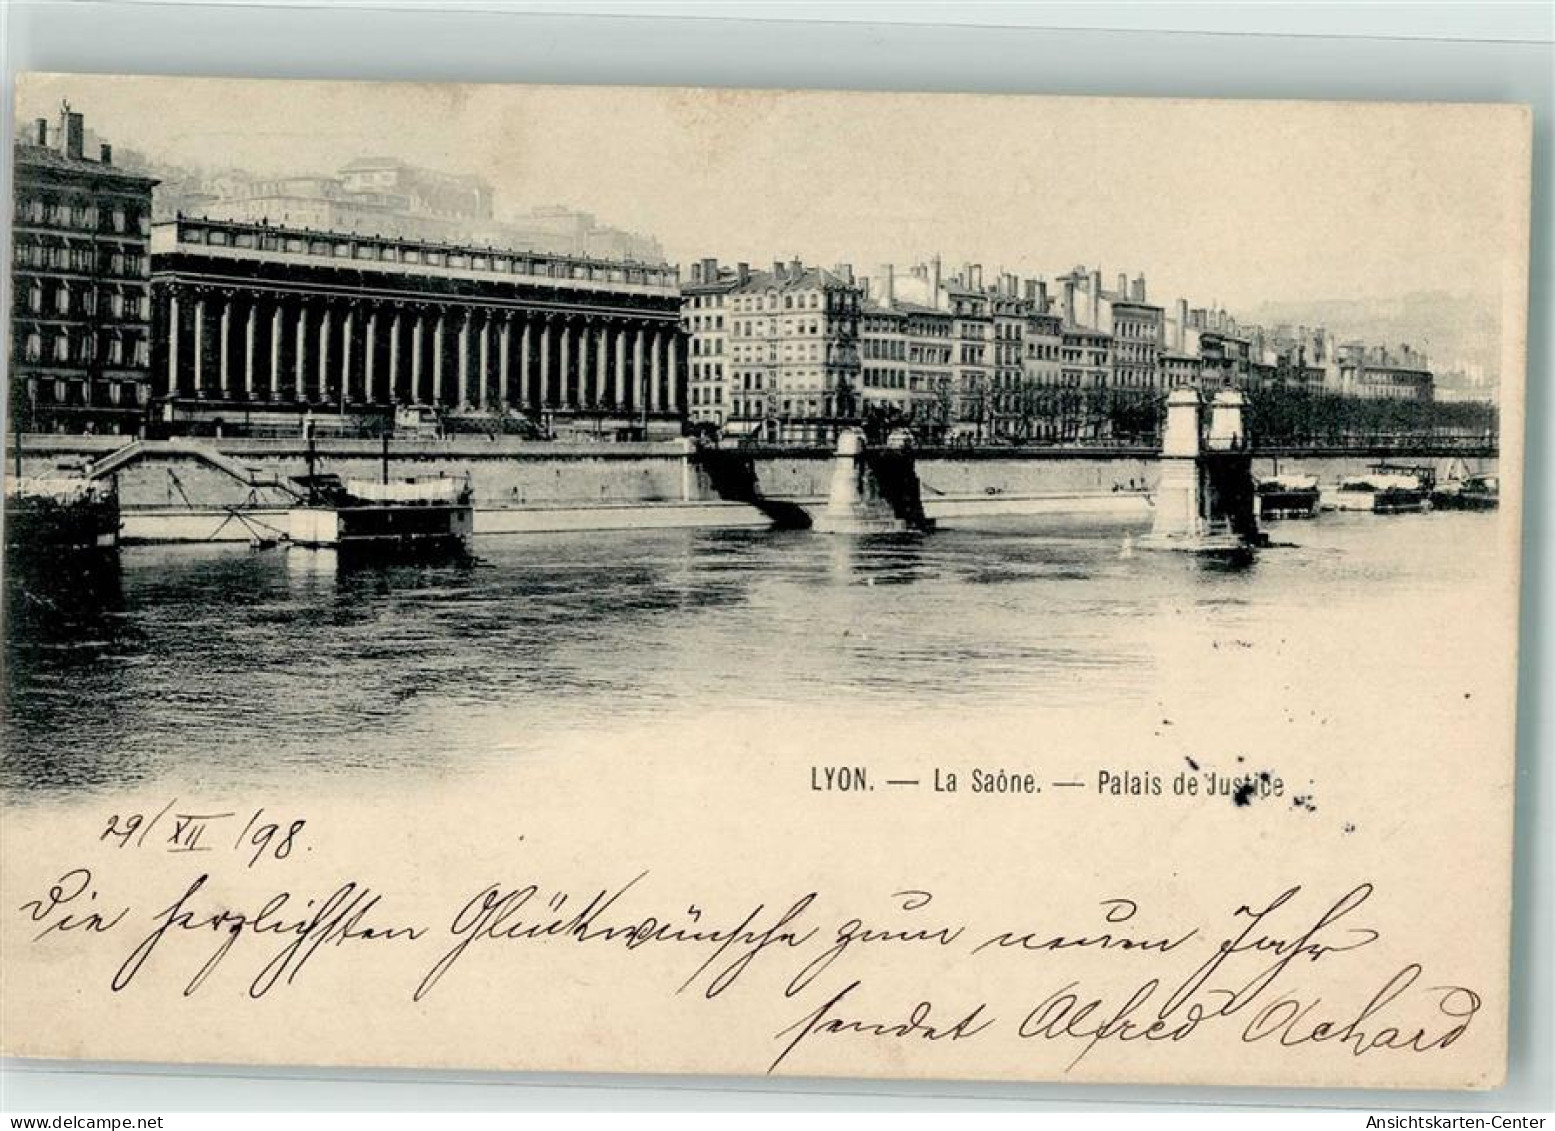 LYON. — La Saône. — Palais de Justice
29/XII/98.
Die herzlichsten Glückwünsche zum neuen Jahr
sendet Alfred Achard
www.delcampe.net
Ansichtskarten-Center